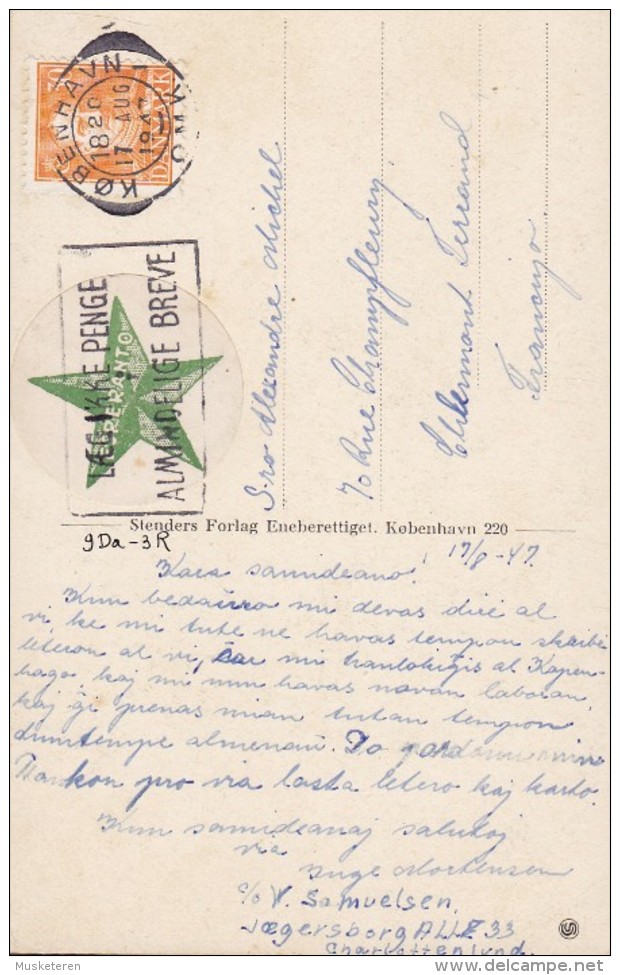 KØBENHAVN
OMV.
1820
17 AUG
1947
30
DANMARK
LÆG IKKE PENGE I
ALMINDELIGE BREVE
ESPERANTO
S-ro Alexandre Michel
70 Rue Champfleury
Clermont Ferrand
Francujo
Stenders Forlag Eneberettiget. København 220
9Da-3R
17/8-47.
Kara samideano!
Kun bedaŭro mi devas diri al
vi, ke mi tute ne havas tempon skribi
leteron al vi, ĉar mi tranlokiĝis al Kopen-
hago kaj mi nun havas novan laboron,
kaj ĝi prenas mian tutan tempon
dumtempe almenaŭ. Do pardonu min.
Dankon pro via lasta letero kaj karto.
Kun samideanaj salutoj
via
Inge Mortensen
c/o V. Samuelsen,
Jægersborg Allé 33
Charlottenlund.
Musketeren
DELCAMPE.NET